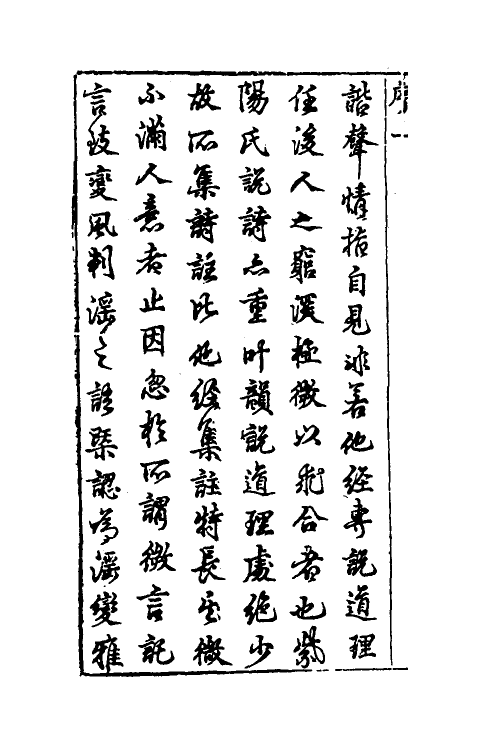 序一
諧聲情指自見非若他經專説道理
任後人之窮深極微以求合者也紫
陽氏説詩亦重叶韻説道理處絶少
故所集詩註比他經集註特長至微
不滿人意者止因忽於所謂微言託
言致變風刺淫之語槩認為淫變雅